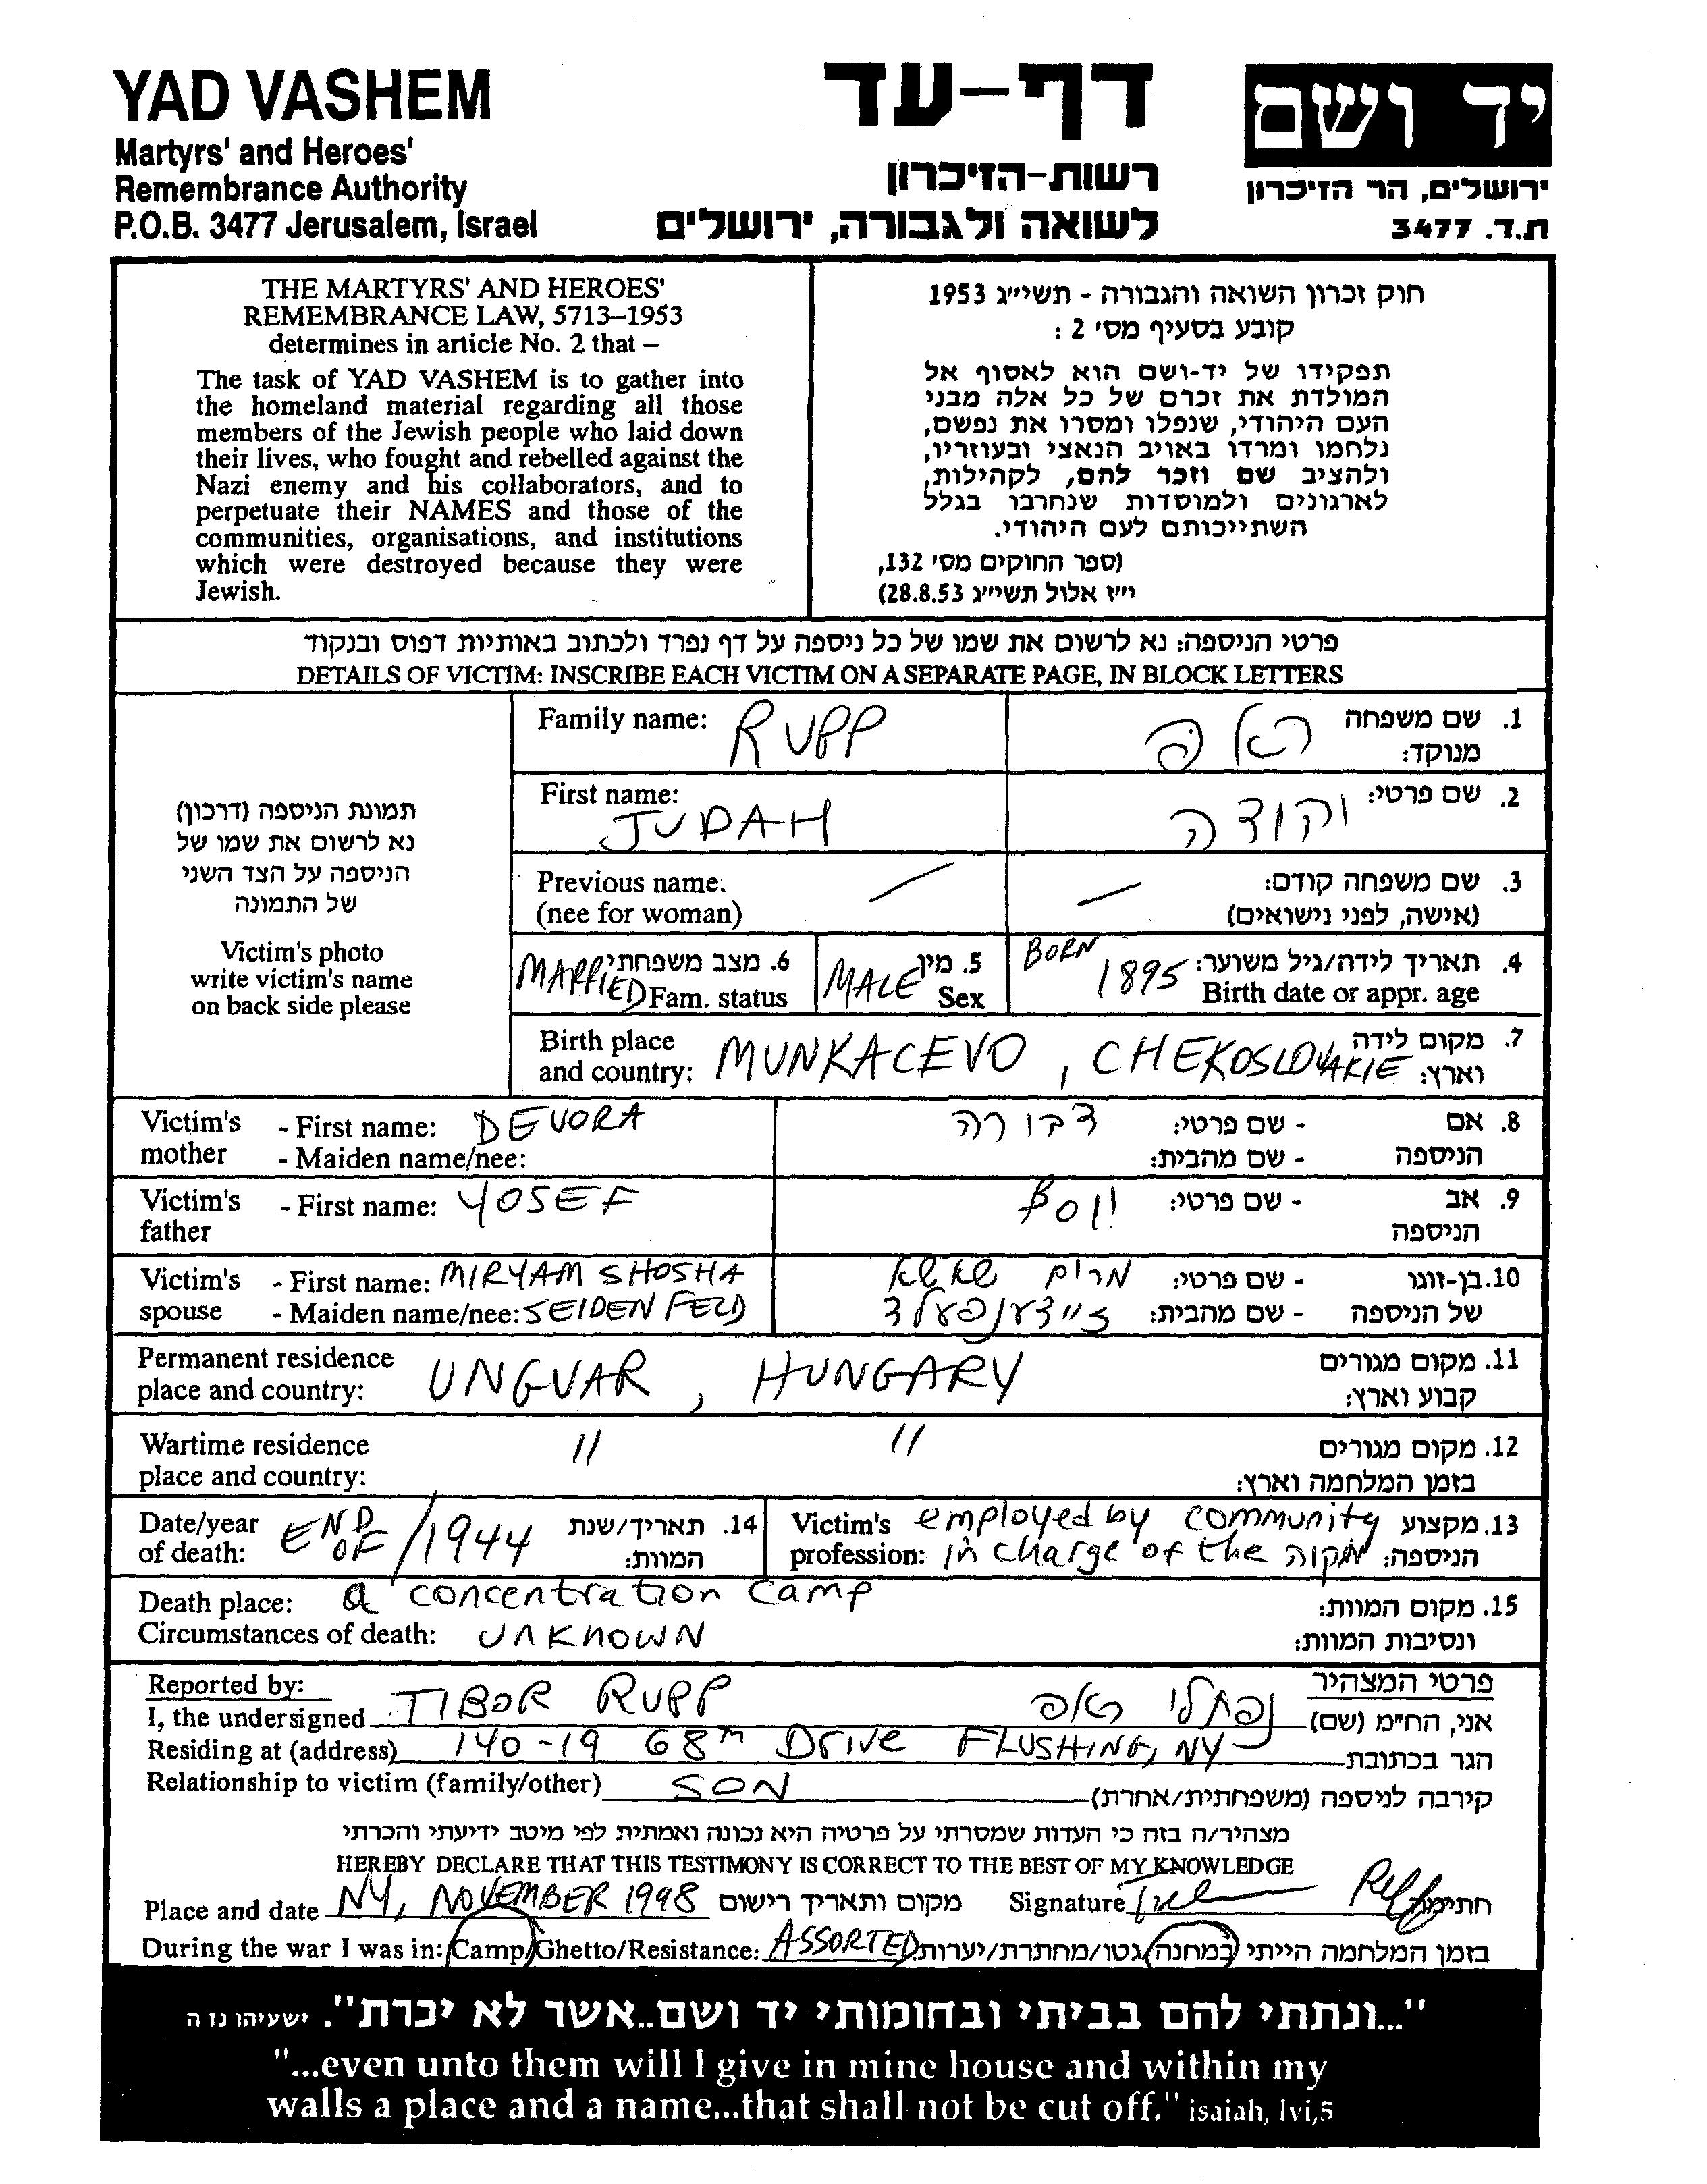 YAD VASHEM
Martyrs' and Heroes'
Remembrance Authority
P.O.B. 3477 Jerusalem, Israel
דף-עד
רשות-הזיכרון
לשואה ולגבורה, ירושלים
יד ושם
ירושלים, הר הזיכרון
ת.ד. 3477
THE MARTYRS' AND HEROES'
REMEMBRANCE LAW, 5713–1953
determines in article No. 2 that –
The task of YAD VASHEM is to gather into
the homeland material regarding all those
members of the Jewish people who laid down
their lives, who fought and rebelled against the
Nazi enemy and his collaborators, and to
perpetuate their NAMES and those of the
communities, organisations, and institutions
which were destroyed because they were
Jewish.
חוק זכרון השואה והגבורה - תשי״ג 1953
קובע בסעיף מס׳ 2 :
תפקידו של יד-ושם הוא לאסוף אל
המולדת את זכרם של כל אלה מבני
העם היהודי, שנפלו ומסרו את נפשם,
נלחמו ומרדו באויב הנאצי ובעוזריו,
ולהציב שם וזכר להם, לקהילות,
לארגונים ולמוסדות שנחרבו בגלל
השתייכותם לעם היהודי.
(ספר החוקים מס׳ 132,
י״ז אלול תשי״ג 28.8.53)
פרטי הניספה: נא לרשום את שמו של כל ניספה על דף נפרד ולכתוב באותיות דפוס ובנקוד
DETAILS OF VICTIM: INSCRIBE EACH VICTIM ON A SEPARATE PAGE, IN BLOCK LETTERS
תמונת הניספה (דרכון)
נא לרשום את שמו של
הניספה על הצד השני
של התמונה
Victim's photo
write victim's name
on back side please
Family name: RUPP ראפ 1. שם משפחה
מנוקד:
First name: JUDAH יהודה 2. שם פרטי:
Previous name: / / 3. שם משפחה קודם:
(nee for woman) (אישה, לפני נישואים)
MARRIED 6. מצב משפחתי Fam. status
MALE 5. מין Sex
BORN 1895 4. תאריך לידה/גיל משוער:
Birth date or appr. age
Birth place and country: MUNKACEVO, CHEKOSLOVAKIE 7. מקום לידה
וארץ:
Victim's mother - First name: DEVORA דבורה - שם פרטי: 8. אם
- Maiden name/nee: - שם מהבית: הניספה
Victim's father - First name: YOSEF יוסף - שם פרטי: 9. אב
הניספה
Victim's spouse - First name: MIRYAM SHOSHA מרים שאשא - שם פרטי: 10. בן-זוגו
- Maiden name/nee: SEIDENFELD זיידענפעלד - שם מהבית: של הניספה
Permanent residence place and country: UNGVAR, HUNGARY 11. מקום מגורים
קבוע וארץ:
Wartime residence place and country: " " 12. מקום מגורים
בזמן המלחמה וארץ:
Date/year of death: END OF /1944 14. תאריך/שנת
המוות:
Victim's profession: employed by community 13. מקצוע
in charge of the מקוה הניספה:
Death place: a concentration camp 15. מקום המוות:
Circumstances of death: UNKNOWN ונסיבות המוות:
Reported by: פרטי המצהיר
I, the undersigned TIBOR RUPP נפתלי ראפ אני, הח״מ (שם)
Residing at (address) 140-19 68TH Drive FLUSHING, NY הגר בכתובת
Relationship to victim (family/other) SON קירבה לניספה (משפחתית/אחרת)
מצהיר/ה בזה כי העדות שמסרתי על פרטיה היא נכונה ואמתית לפי מיטב ידיעתי והכרתי
HEREBY DECLARE THAT THIS TESTIMONY IS CORRECT TO THE BEST OF MY KNOWLEDGE
Place and date NY, NOVEMBER 1998 מקום ותאריך רישום Signature חתימה
During the war I was in: Camp/Ghetto/Resistance: ASSORTED בזמן המלחמה הייתי במחנה/גטו/מחתרת/יערות
"...ונתתי להם בביתי ובחומותי יד ושם..אשר לא יכרת". ישעיהו נו ה
"...even unto them will I give in mine house and within my
walls a place and a name...that shall not be cut off." isaiah, lvi,5